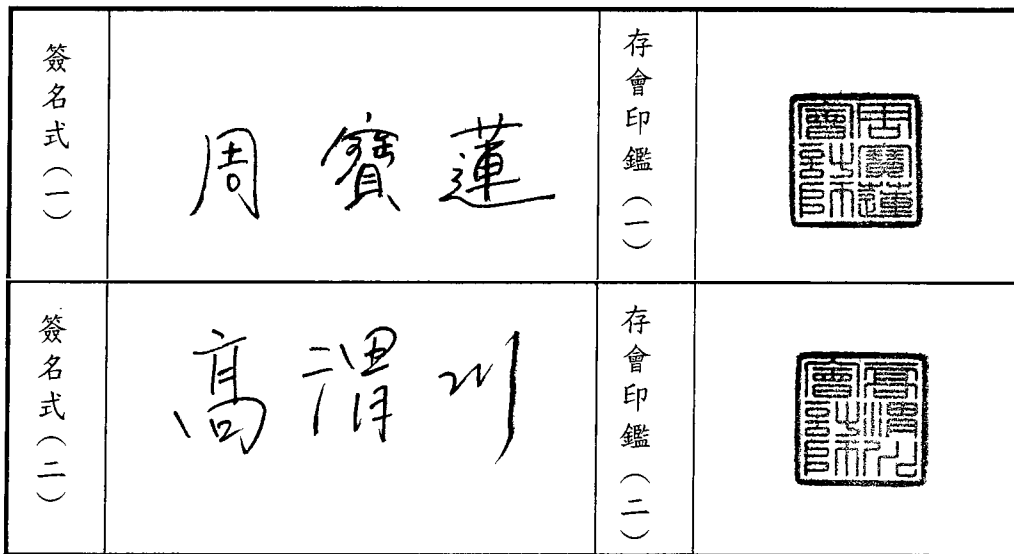 簽名式（一）
周寶蓮
存會印鑑（一）
周寶蓮會計師
簽名式（二）
高渭川
存會印鑑（二）
高渭川會計師